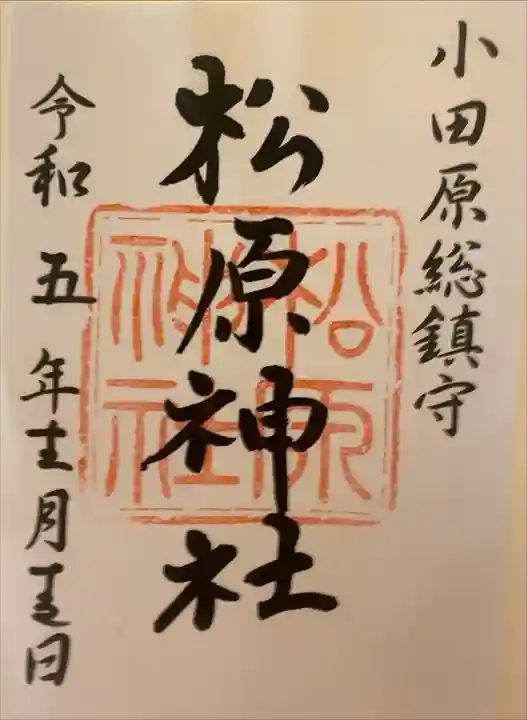 小田原総鎮守
松原神社
松原神社
令和五年十二月日